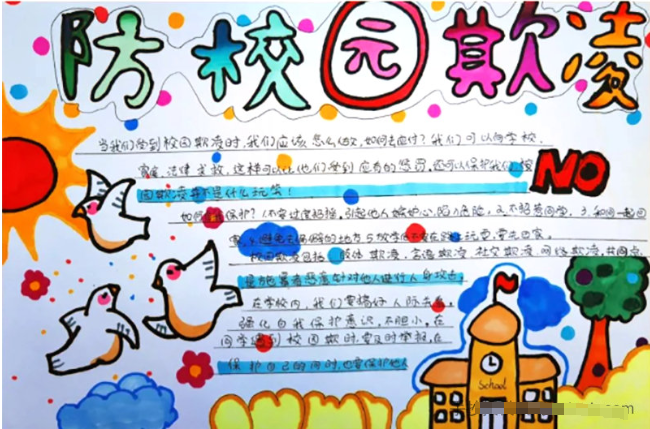 防校园欺凌
当我们受到校园欺凌时,我们应该怎么做,如何去应付?我们可以向学校、
家 、法律求救,这样可以让他们受到应有的惩罚,还可以保护我们,校
园欺凌并不是什么玩笑!
NO
如何 保护?1.不要过度招摇,引起他人嫉妒心,陷入危险,2.不招惹同学,3.和同 一起回
家,4.避免去 的地方5.放学后不要在路上玩耍,要先回家。
校园欺凌包括 肢体欺凌,言语欺凌,社交欺凌,网络欺凌,共同点
是施暴者恶意针对他人进行人身攻击。
在学校内,我们要搞好人际关系。
强化自我保护意识,不胆小。在
同学遇到校园欺 时要及时举报,在
保护自己的同时,也要保护他人
School